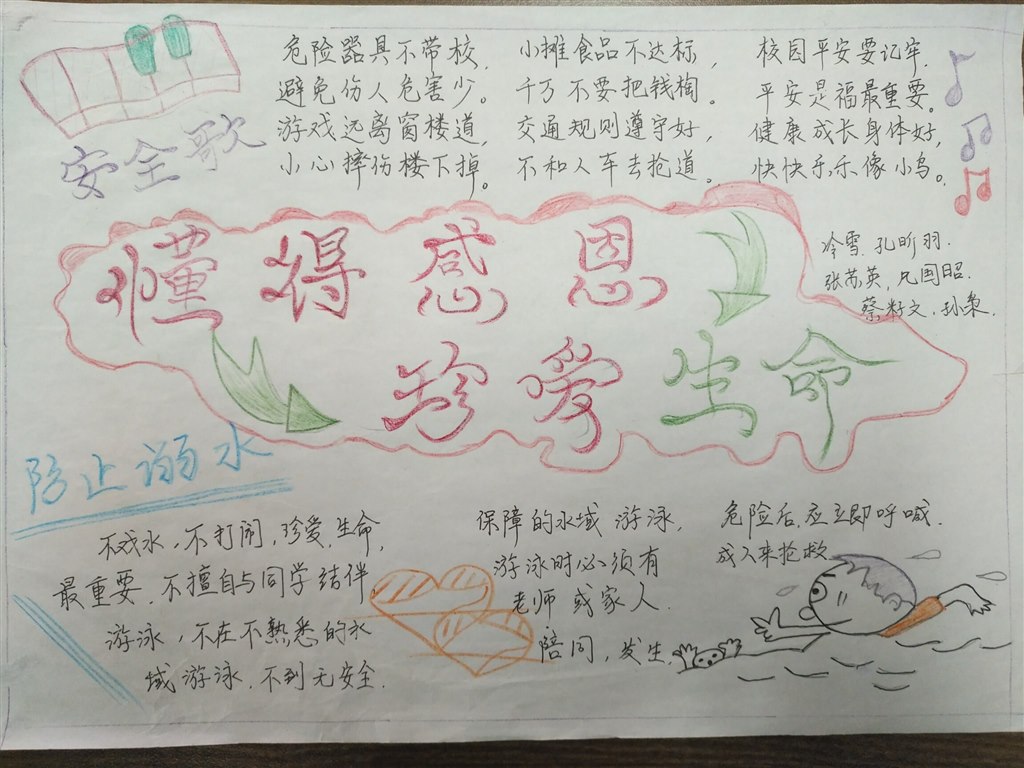 安全歌
危险器具不带校，
避免伤人危害少。
游戏远离窗楼道，
小心摔伤楼下掉。
小摊食品不达标，
千万不要把钱掏。
交通规则遵守好，
不和人车去抢道。
校园平安要记牢，
平安是福最重要。
健康成长身体好，
快快乐乐像小鸟。
冷雪.孔昕羽.
张芮英，国昭.
蔡籽文.孙
懂得感恩
珍爱生命
陪止溺水
不戏水，不打闹，珍爱生命，
最重要.不擅自与同学结伴
游泳，不在不熟悉的水
域游泳.不到无安全.
保障的水域游泳，
游泳时必须有
老师或家人.
陪同，发生
危险后，应立即呼喊.
成人来抢救